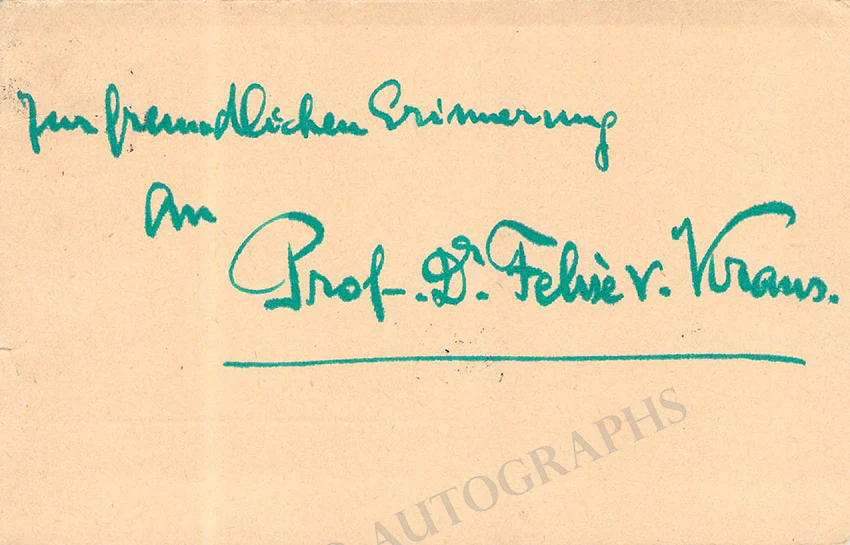 Zur freundlichen Erinnerung
an
Prof. Dr. Felix v. Kraus.
AUTOGRAPHS